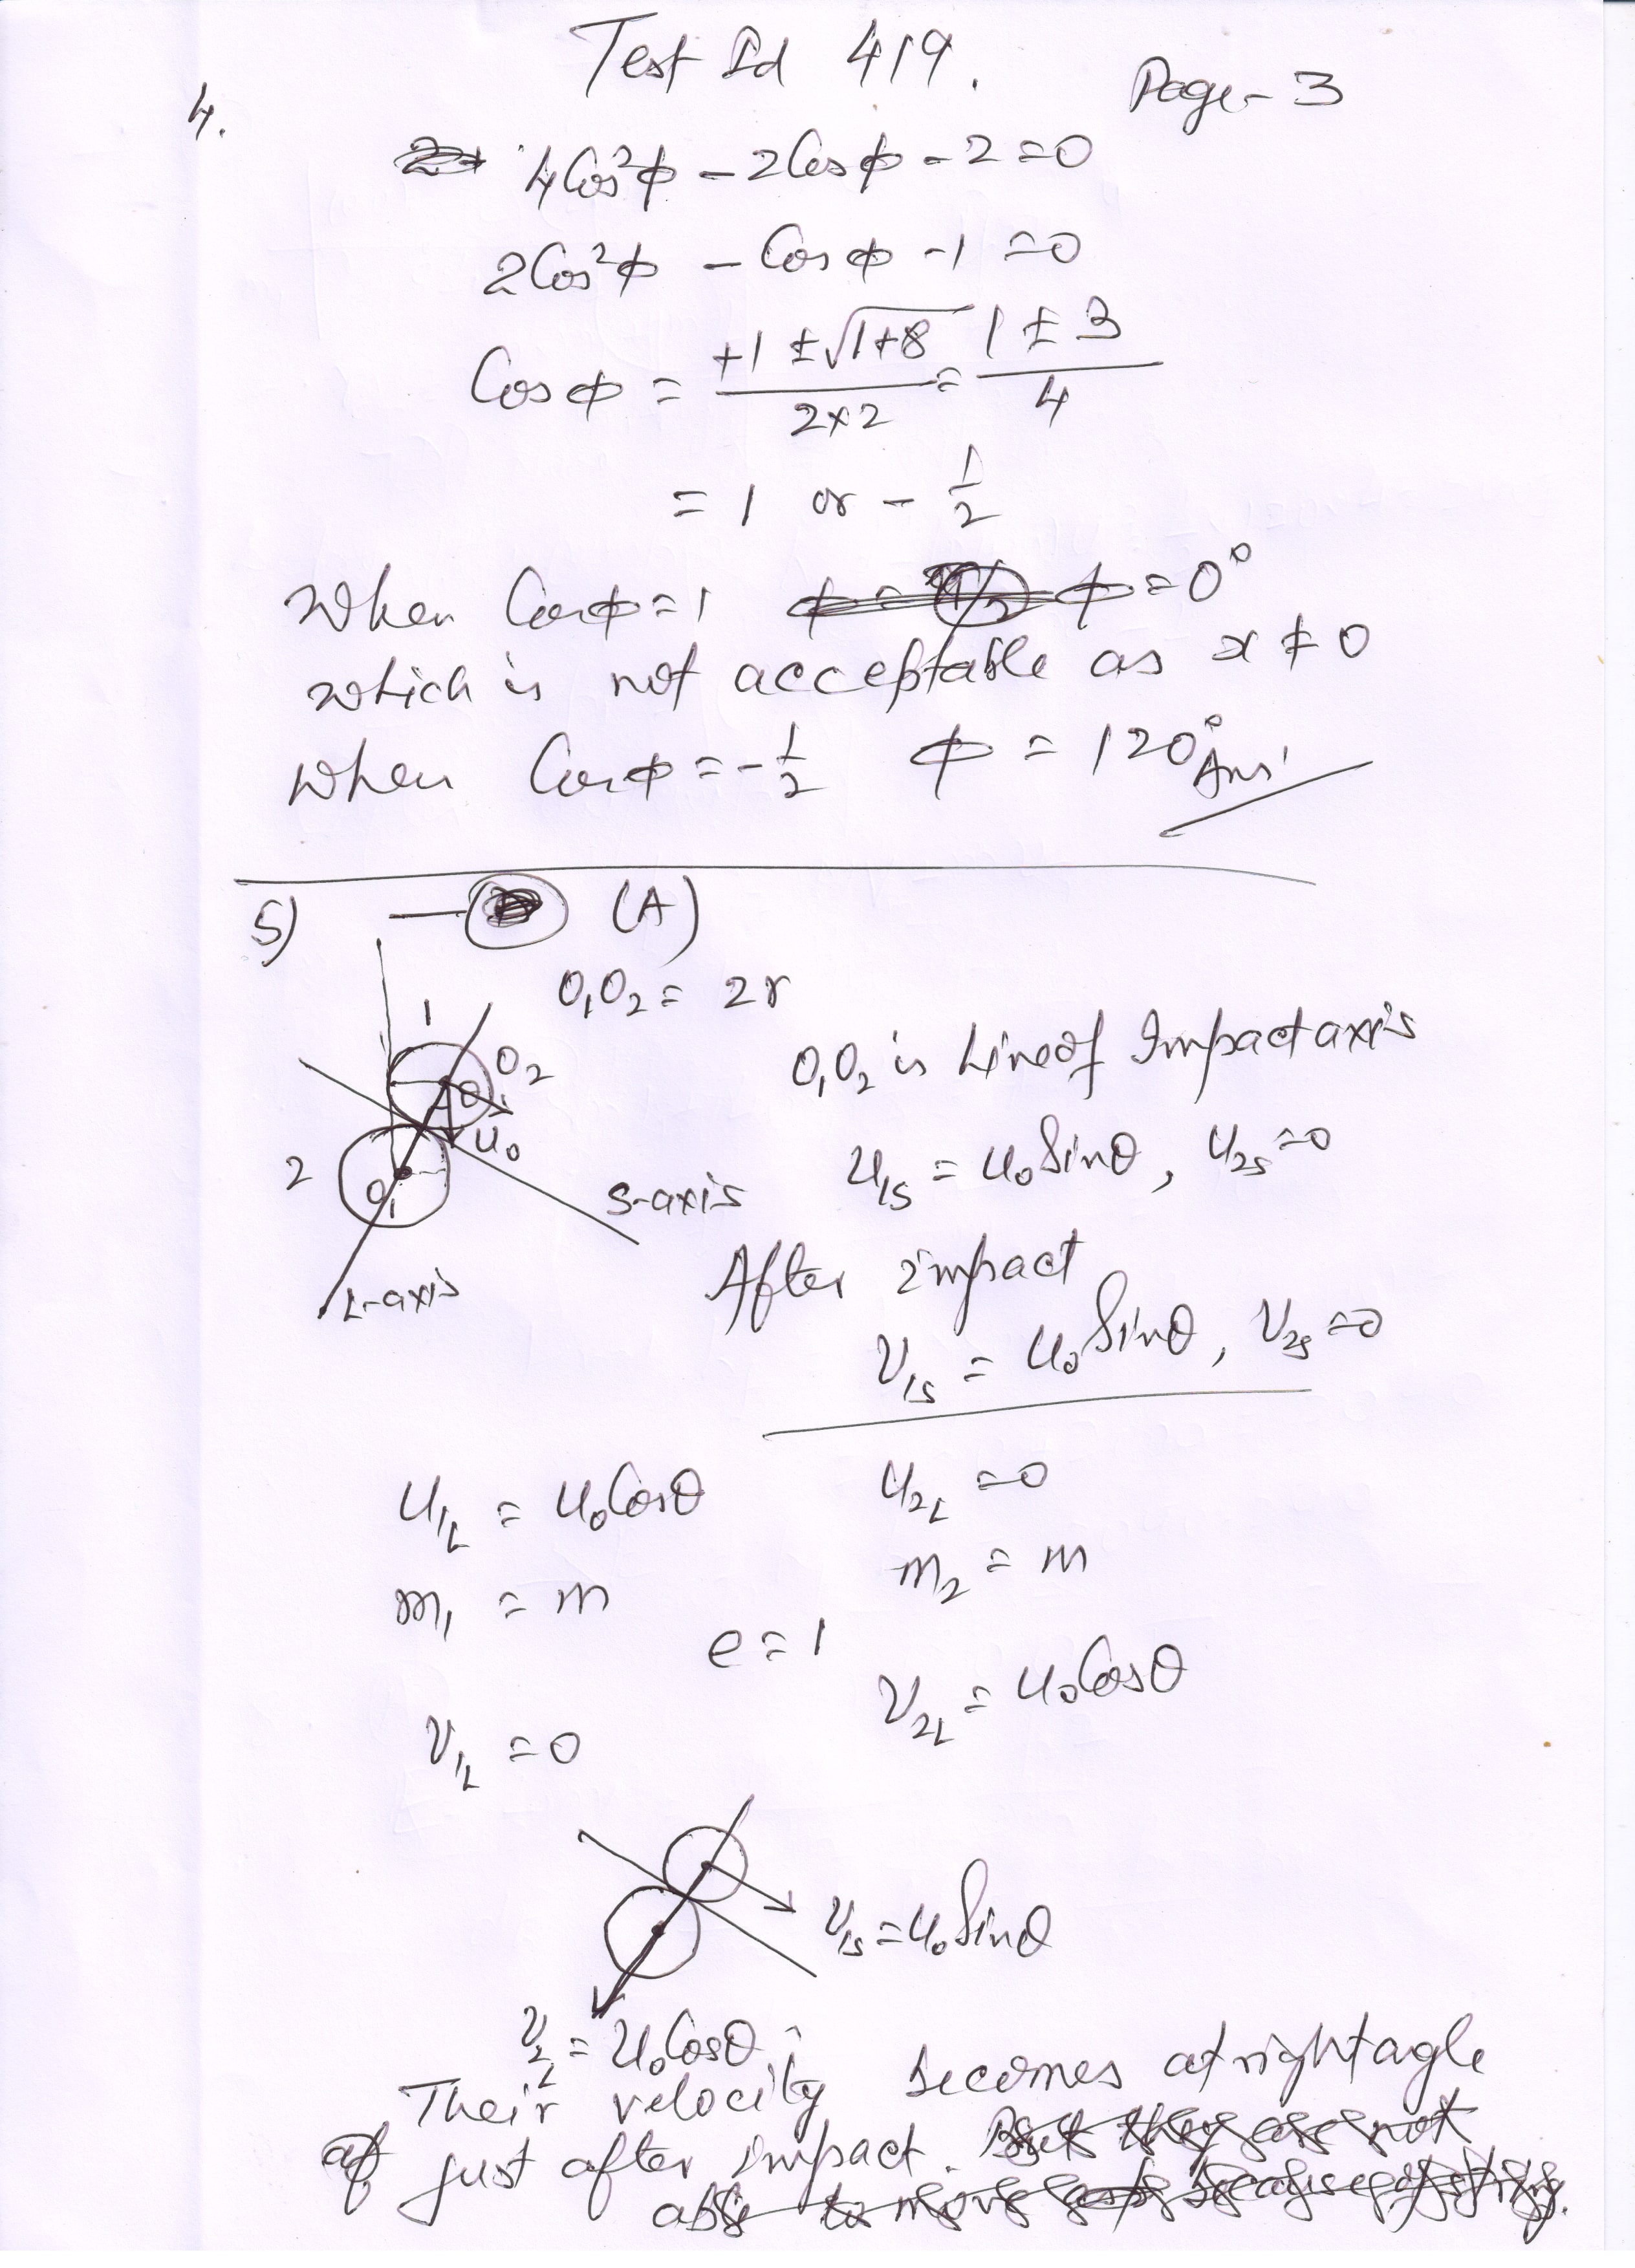 Test Id 419.
Page- 3
4.
4Cos²φ - 2Cosφ - 2 = 0
2Cos²φ - Cosφ - 1 = 0
Cosφ = (+1 ± √(1+8))/(2×2) = (1 ± 3)/4
= 1 or - 1/2
When Cosφ = 1 φ = 0°
which is not acceptable as x ≠ 0
When Cosφ = - 1/2 φ = 120° Ans.
5) (A)
O₁O₂ = 2r
1
O₂
O₁O₂ is Line of Impact axis
θ
u₀
2
O₁
S-axis
u₁s = u₀ Sinθ, u₂s = 0
L-axis
After impact
v₁s = u₀ Sinθ, v₂s = 0
u₁L = u₀ Cosθ u₂L = 0
m₁ = m m₂ = m
e = 1
v₁L = 0 v₂L = u₀ Cosθ
v₁s = u₀ Sinθ
v₂L = u₀ Cosθ
Their velocity becomes at right agle
just after impact.